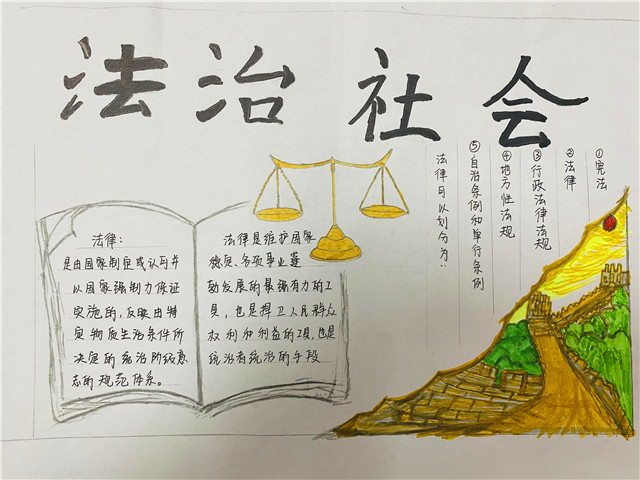 法治社会
法律：
是由国家制定或认可并
以国家强制力保证
实施的，反映由特
定物质生活条件所
决定的统治阶级意
志的规范体系。
法律是维护国家
稳定、各项事业蓬
勃发展的最强有力的工
具，也是捍卫人民群众
权利和利益的工具，也是
统治者统治的手段
法律可以划分为：
①宪法
②法律
③行政法律法规
④地方性法规
⑤自治条例和单行条例